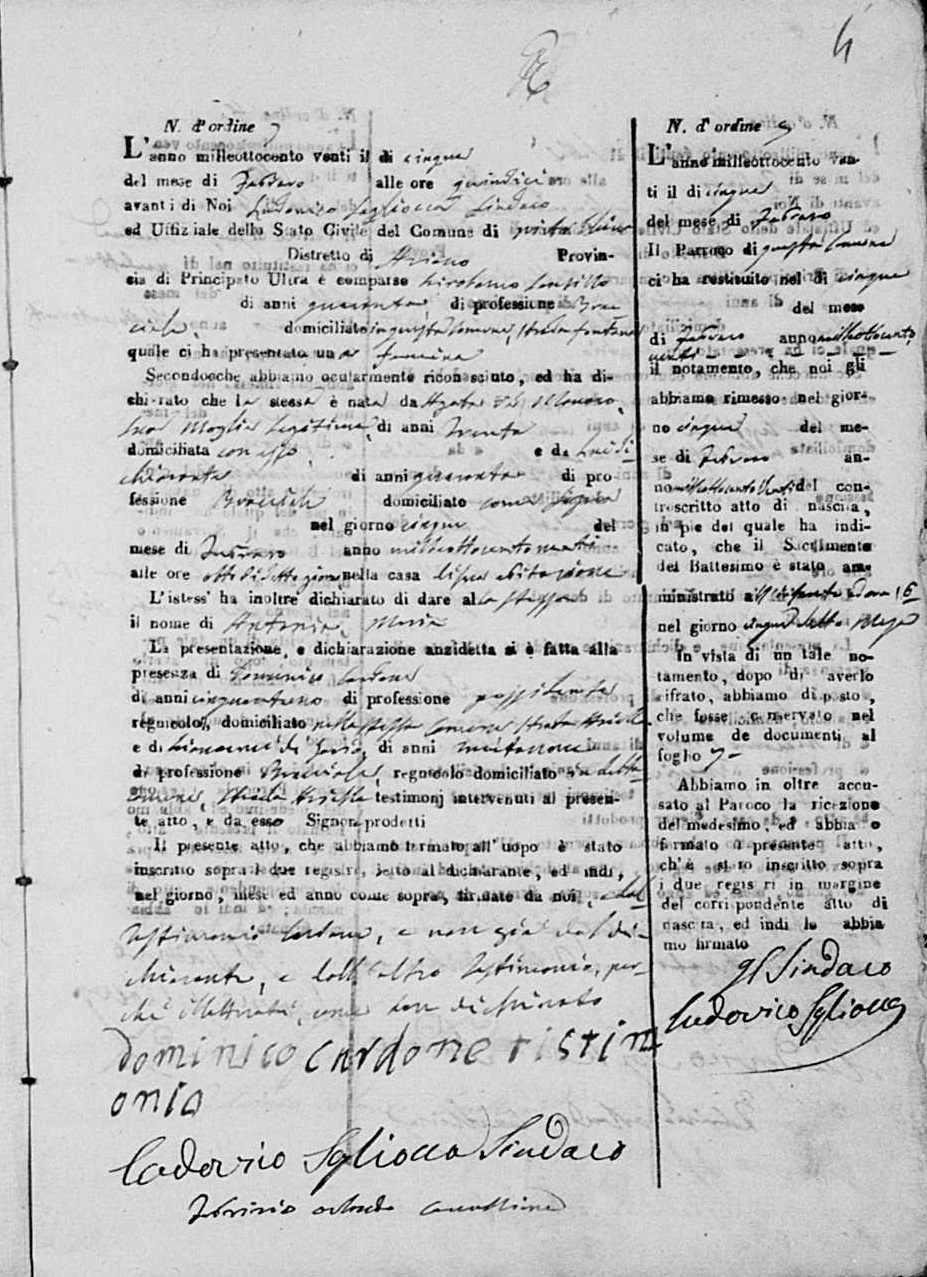 4
N. d'ordine 7
L'anno milleottocento venti il dì cinque
del mese di Febraro alle ore quindici
avanti di Noi Ludovico Sgliocca Sindaco
ed Uffiziale dello Stato Civile del Comune di
Distretto di Ariano Provin-
cia di Principato Ultra è comparso Girolamo
di anni quaranta di professione Brac
ciale domiciliato in questa Comune, strada fontana
quale ci ha presentato una femina
Secondocche abbiamo ocularmente riconosciuto, ed ha di-
chiarato che la stessa è nata da Agata
sua Moglie legittima, di anni trenta
domiciliata con esso e da lui di-
chiarante di anni quaranta di pro-
fessione Bracciale domiciliato come sopra
nel giorno cinque del
mese di Febraro anno milleottocento venti
alle ore otto di detto giorno nella casa di sua abitazione
L'istess' ha inoltre dichiarato di dare alla stessa
il nome di Antonia, Maria
La presentazione, e dichiarazione anzidetta si è fatta alla
presenza di Domenico Cardone
di anni cinquantuno di professione possidente
regnicolo, domiciliato nella stessa Comune strada
e di Giovanni di di anni
di professione Bracciale, regnicolo domiciliato in detta
Comune, strada testimonj intervenuti al presen-
te atto, e da esso Signor prodotti
Il presente atto, che abbiamo formato all'uopo è stato
inscritto sopra i due registri, letto al dichiarante, ed indi,
nel giorno, mese ed anno come sopra, firmato da noi, e dal
testimonio Cardone, e non già dal di-
chiarante, e dall'altro testimonio, per-
ché illetterati, come han dichiarato
dominico cardone tistim
onio
Lodovico Sgliocca Sindaco
N. d'ordine 7
L'anno milleottocento ven-
ti il dì cinque
del mese di Febraro
Il Parroco di questa Comune
ci ha restituito nel dì cinque
del mese
di Febraro anno milleottocento
venti
il notamento, che noi gli
abbiamo rimesso nel gior-
no cinque del me-
se di Febraro an-
no milleottocento venti del con-
troscritto atto di nascita,
in piè del quale ha indi-
cato, che il Sacramento
del Battesimo è stato am-
ministrato all'infante ad ora 16
nel giorno cinque detto Mese
In vista di un tale no-
tamento, dopo di averlo
cifrato, abbiamo disposto,
che fosse conservato nel
volume de documenti al
foglio 7
Abbiamo in oltre accu-
sato al Paroco la ricezione
del medesimo, ed abbiamo
formato il presente atto,
ch'è stato inscritto sopra
i due registri in margine
del corrispondente atto di
nascita, ed indi lo abbia
mo firmato
Il Sindaco
Ludovico Sgliocca